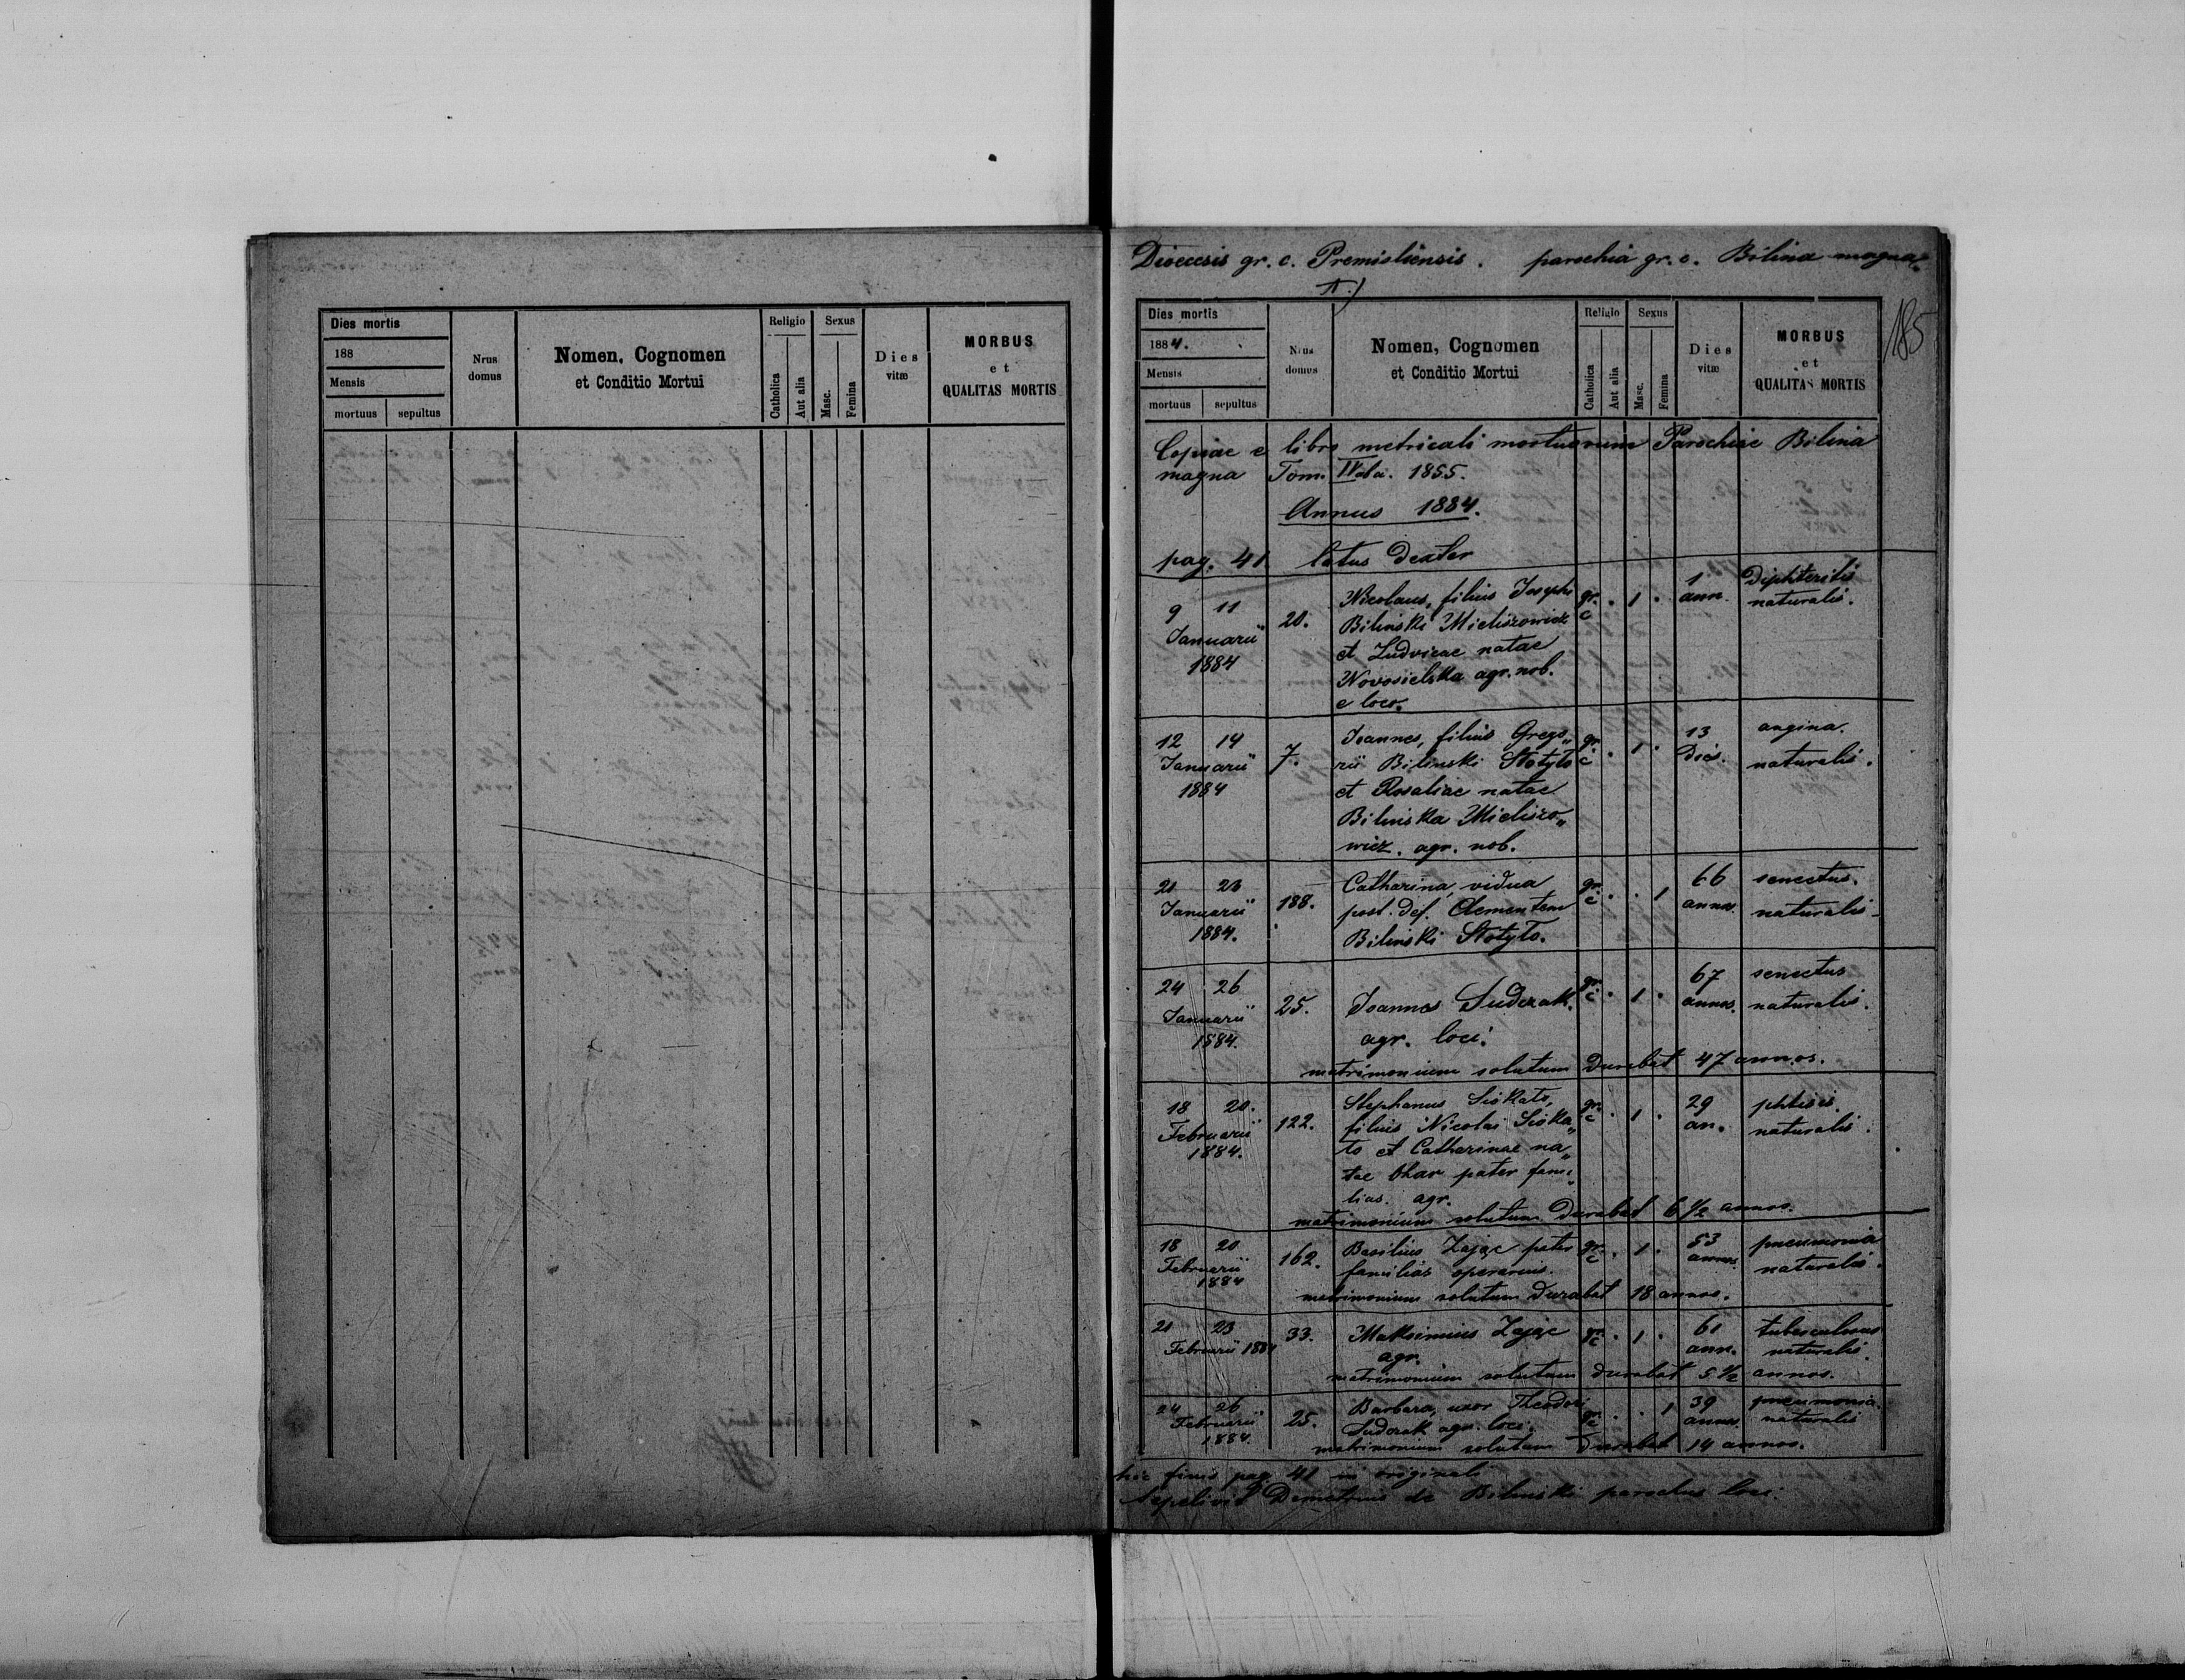 Dies mortis
188
Mensis
mortuus sepultus
Nrus domus
Nomen, Cognomen
et Conditio Mortui
Religio
Catholica
Aut alia
Sexus
Masc.
Femina
Dies vitæ
MORBUS
et
QUALITAS MORTIS
Dioecesis gr. c. Premisliensis. parochia gr. c. Bilina magna.
185
Dies mortis
1884.
Mensis
mortuus sepultus
Nrus domus
Nomen, Cognomen
et Conditio Mortui
Religio
Catholica
Aut alia
Sexus
Masc.
Femina
Dies vitæ
MORBUS
et
QUALITAS MORTIS
Copiae e libro metricali mortuorum Parochiae Bilina
magna Tom. IV 1855.
Annus 1884.
pag. 41 latus dexter
9 11 20. Nicolaus, filius Josephi gr. c . 1 . 1 ann. Diphteritis
Januarii Bilinski Mieliszowicz naturalis.
1884 et Ludvicae natae
Novosielska agr. nob.
e loco.
12 14 7. Joannes, filius Grego„ gr. c . 1 . 13 dies. angina.
Januarii rii Bilinski Stotyto naturalis.
1884 et Rosaliae natae
Bilinska Mieliszo„
wicz. agr. nob.
21 23 188. Catharina, vidua gr. c . . 1 66 annos. senectus.
Januarii post. def. Clementem naturalis
1884. Bilinski Stotyto.
24 26 25. Joannes Suderak. gr. c . 1 . 67 annos. senectus
Januarii agr. loci. naturalis.
1884.
matrimonium solutum durabat 47 annos.
18 20. 122. Stephanus Siskato, gr. c . 1 . 29 an. phtisis
Februarii filius Nicolai Siska„ naturalis.
1884. to et Catharinae na„
tae pater fami„
lias. agr.
matrimonium solutum durabat 6 1/2 annos.
18 20 162. Basilius Zając pater gr. c . 1 . 53 annos. pneumonia
Februarii familias operarius. naturalis.
1884
matrimonium solutum durabat 18 annos.
21 23 33. Maksimius Zając gr. c . 1 . 61 ann. tuberculosus
Februarii 1884 agr. naturalis.
matrimonium solutum durabat 5 1/2 annos.
24 26 25. Barbara, uxor Theodori gr. c . . 1 39 annos. pneumonia.
Februarii Suderak agr. loci. naturalis
1884.
matrimonium solutum durabat 14 annos.
hic finis pag. 41 in originali
Sepelivit Demetrius de Bilinski parochus loci.